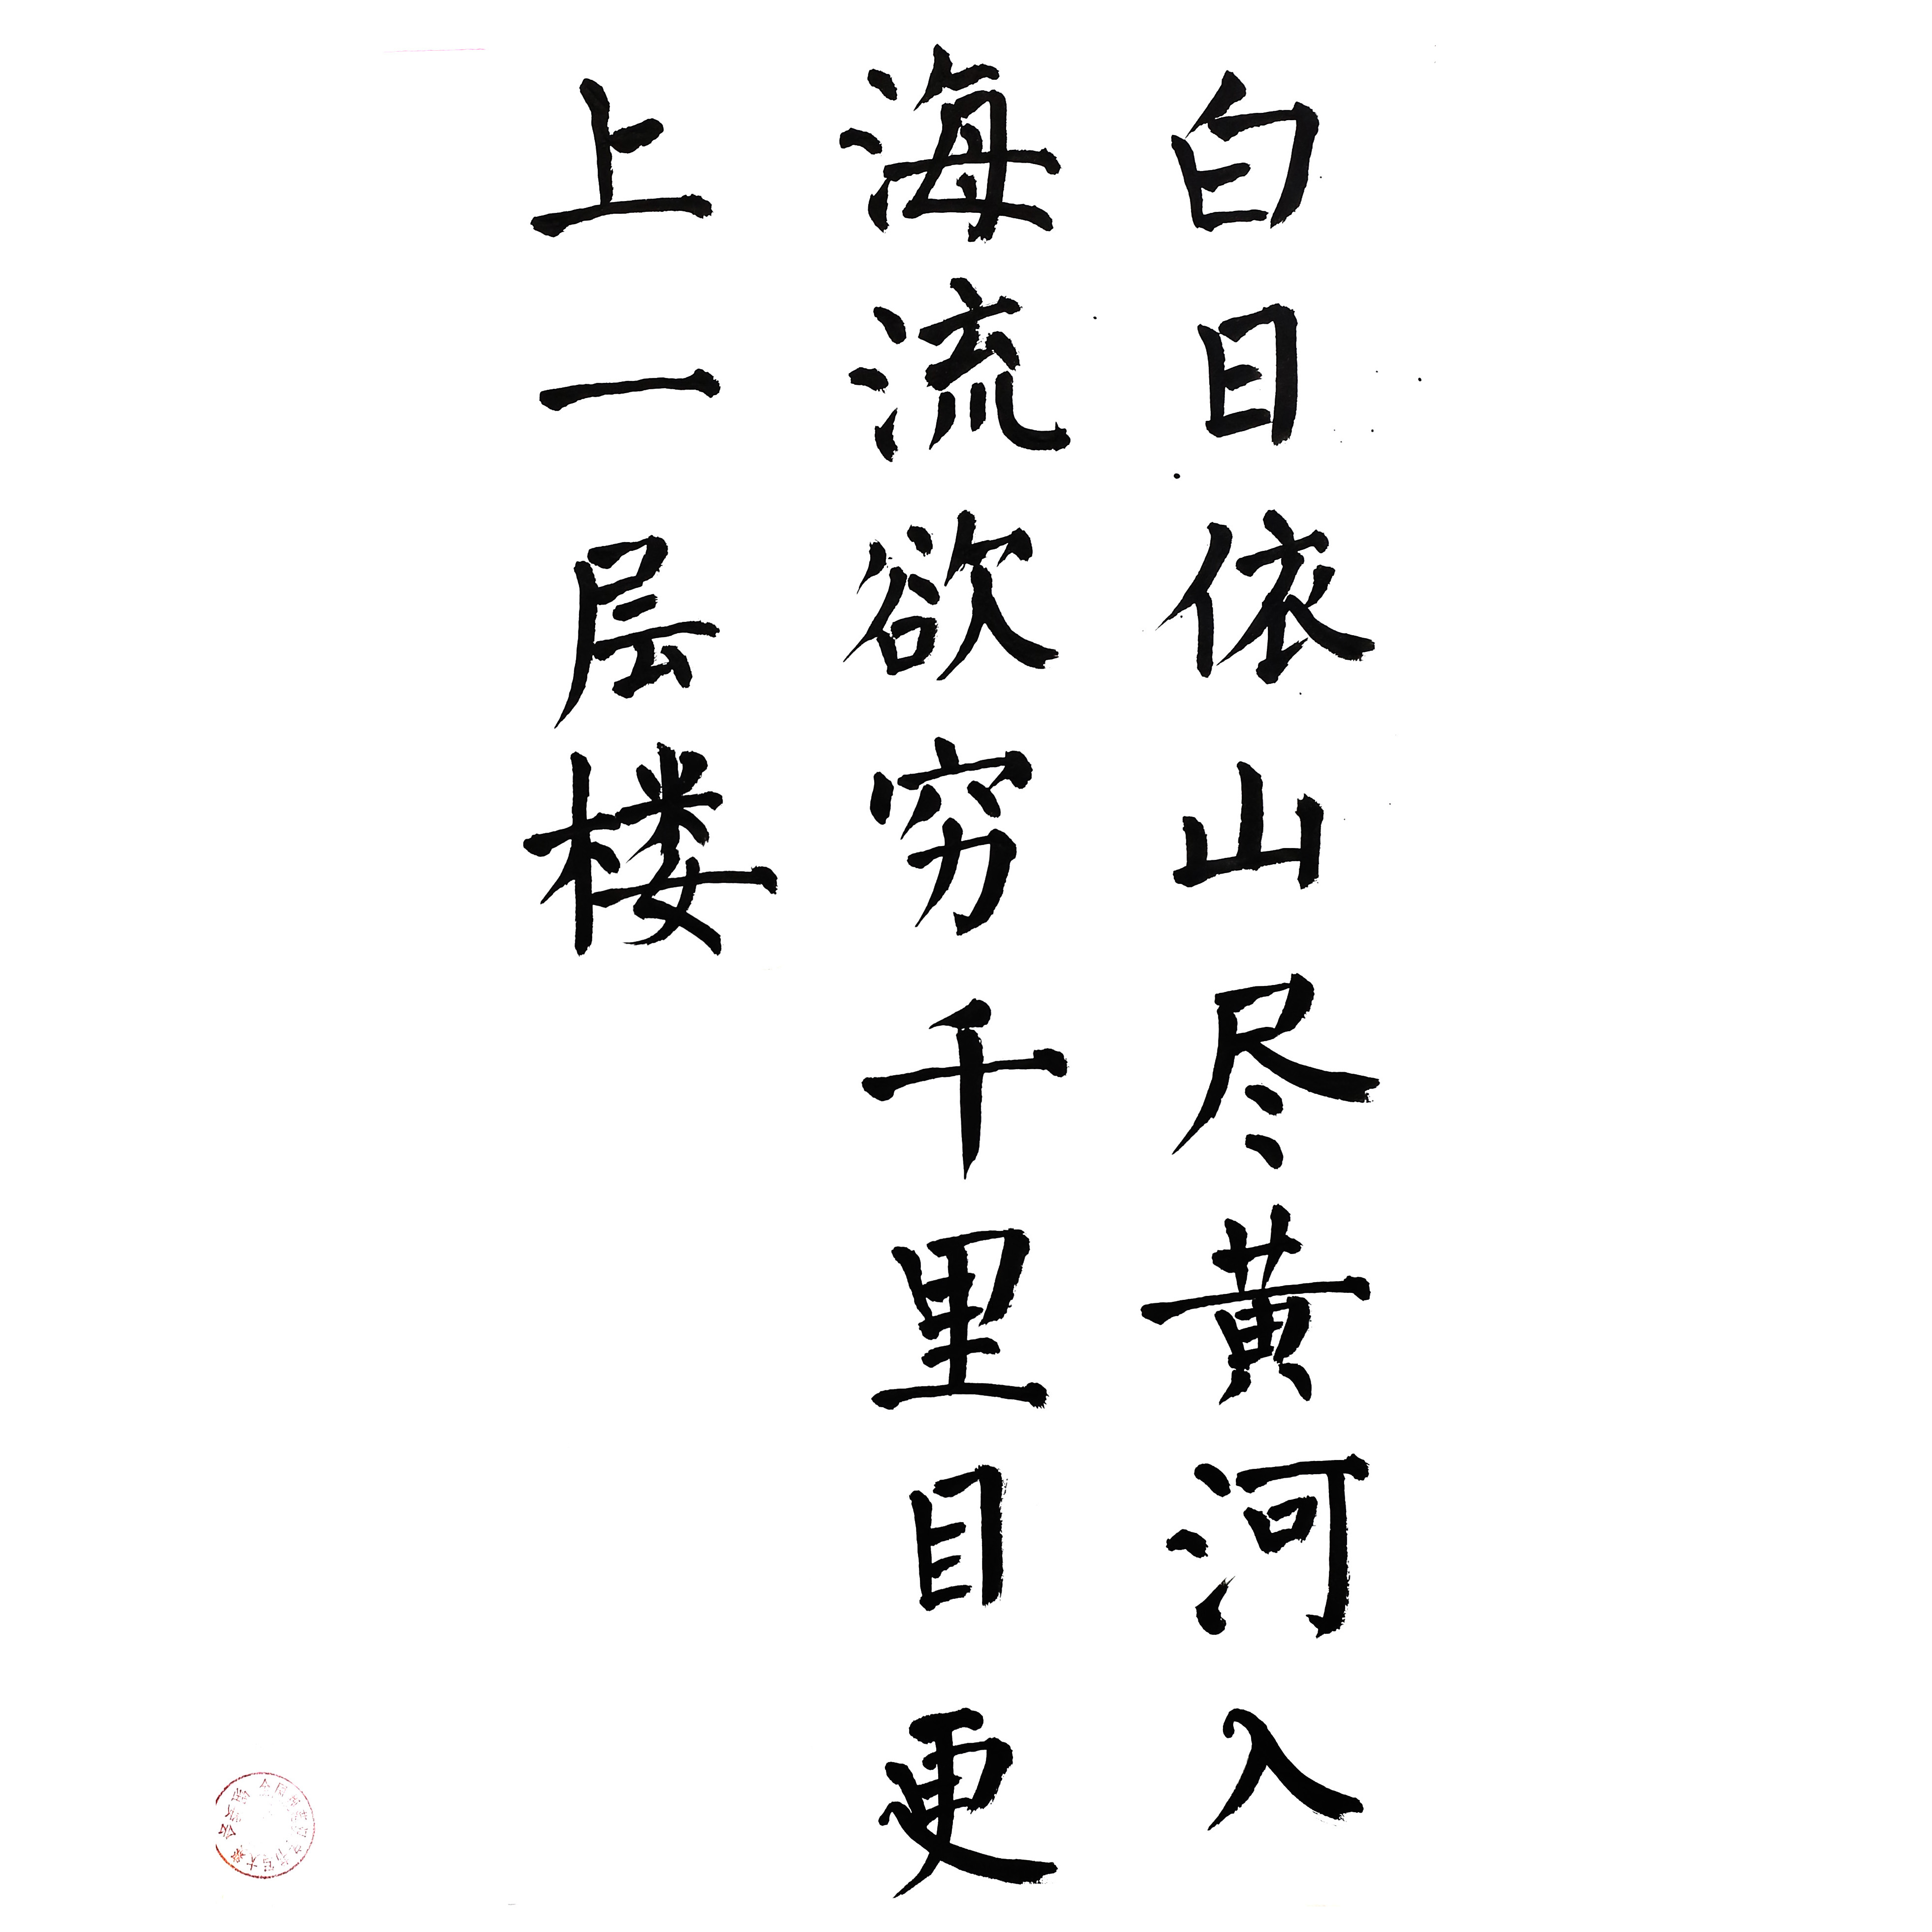 白日依山尽黄河入
海流欲穷千里目更
上一层楼